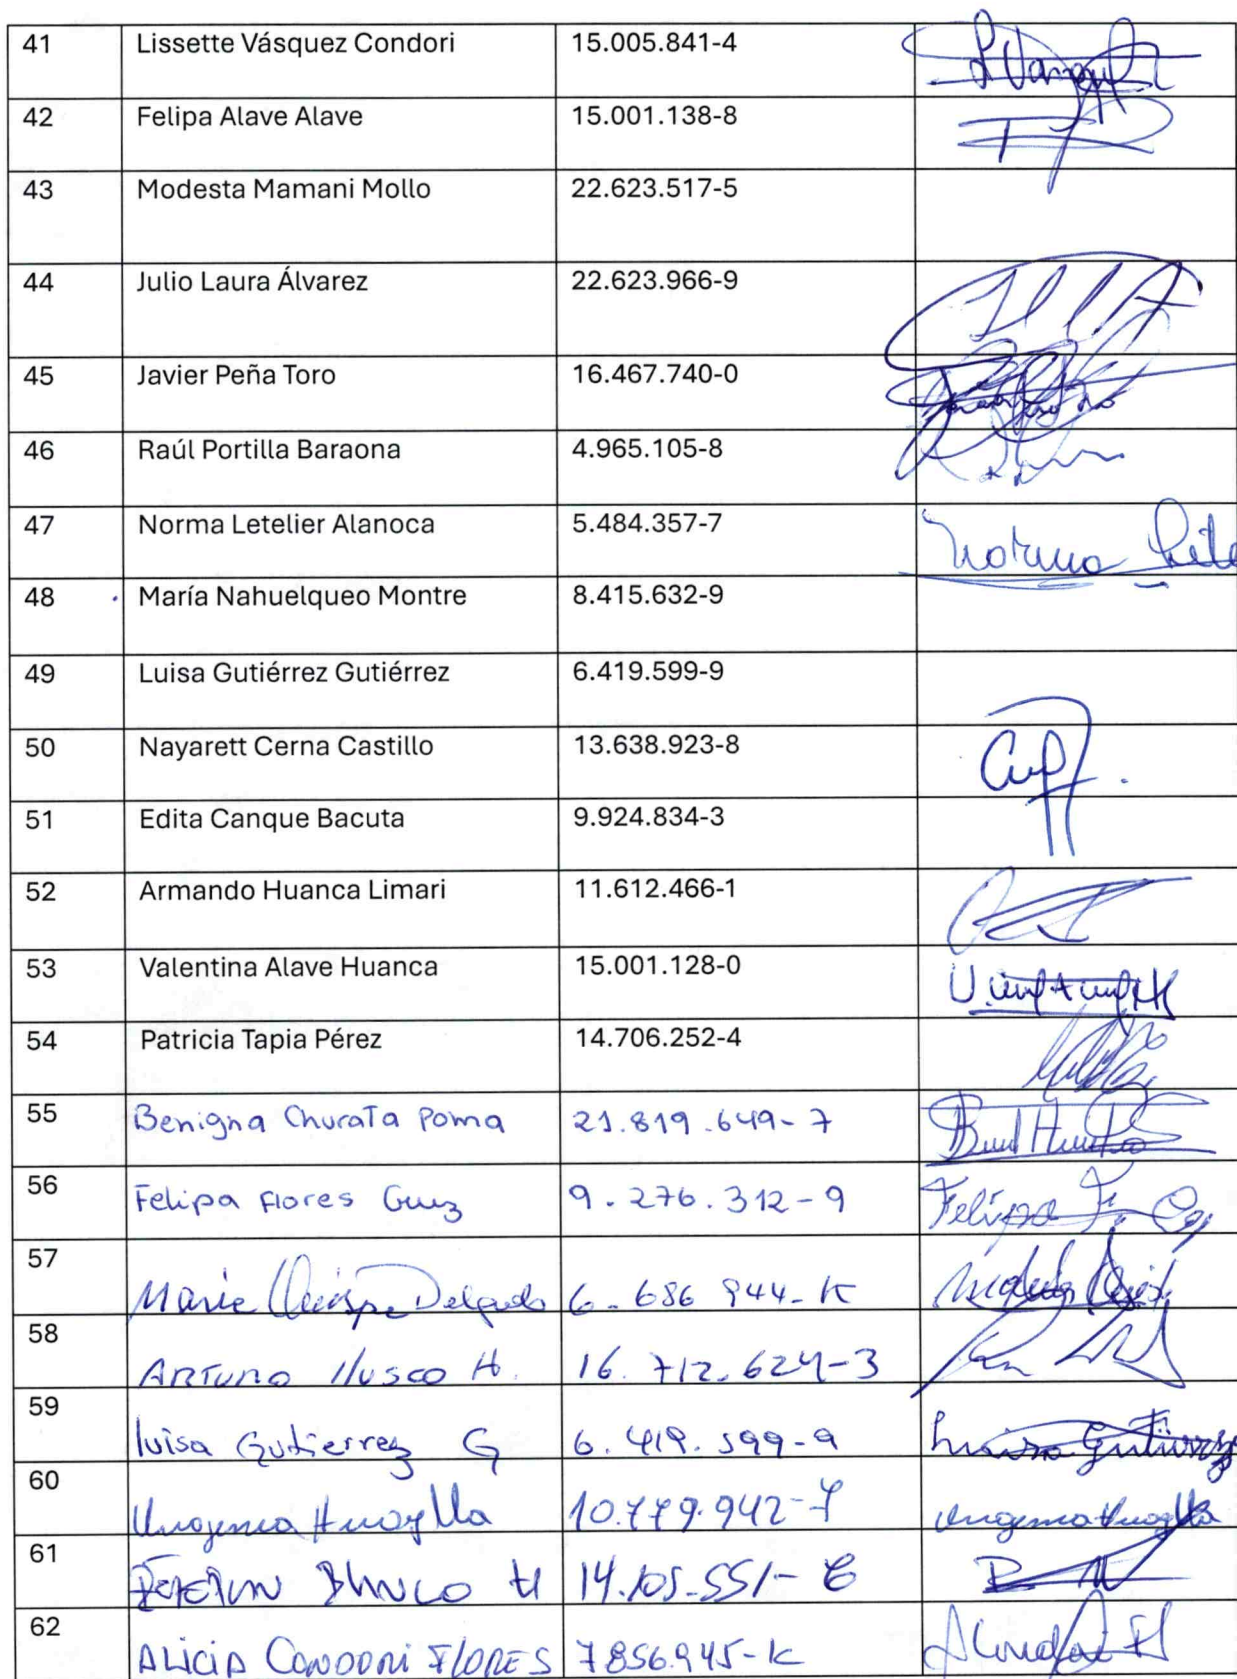 41 Lissette Vásquez Condori 15.005.841-4
42 Felipa Alave Alave 15.001.138-8
43 Modesta Mamani Mollo 22.623.517-5
44 Julio Laura Álvarez 22.623.966-9
45 Javier Peña Toro 16.467.740-0
46 Raúl Portilla Baraona 4.965.105-8
47 Norma Letelier Alanoca 5.484.357-7 Norma
48 María Nahuelqueo Montre 8.415.632-9
49 Luisa Gutiérrez Gutiérrez 6.419.599-9
50 Nayarett Cerna Castillo 13.638.923-8
51 Edita Canque Bacuta 9.924.834-3
52 Armando Huanca Limari 11.612.466-1
53 Valentina Alave Huanca 15.001.128-0
54 Patricia Tapia Pérez 14.706.252-4
55 Benigna Churata Poma 21.819.649-7
56 Felipa Flores 9.276.312-9 Felipa F.
57 Quispe Delgado 6.686 944-K
58 Arturo H. 16.712.624-3
59 luisa Gutierrez G 6.419.599-9 Luisa Gutierrez
60 10.779.942-7
61 14.105.551-
62 Alicia Condori Flores 7856.945-K